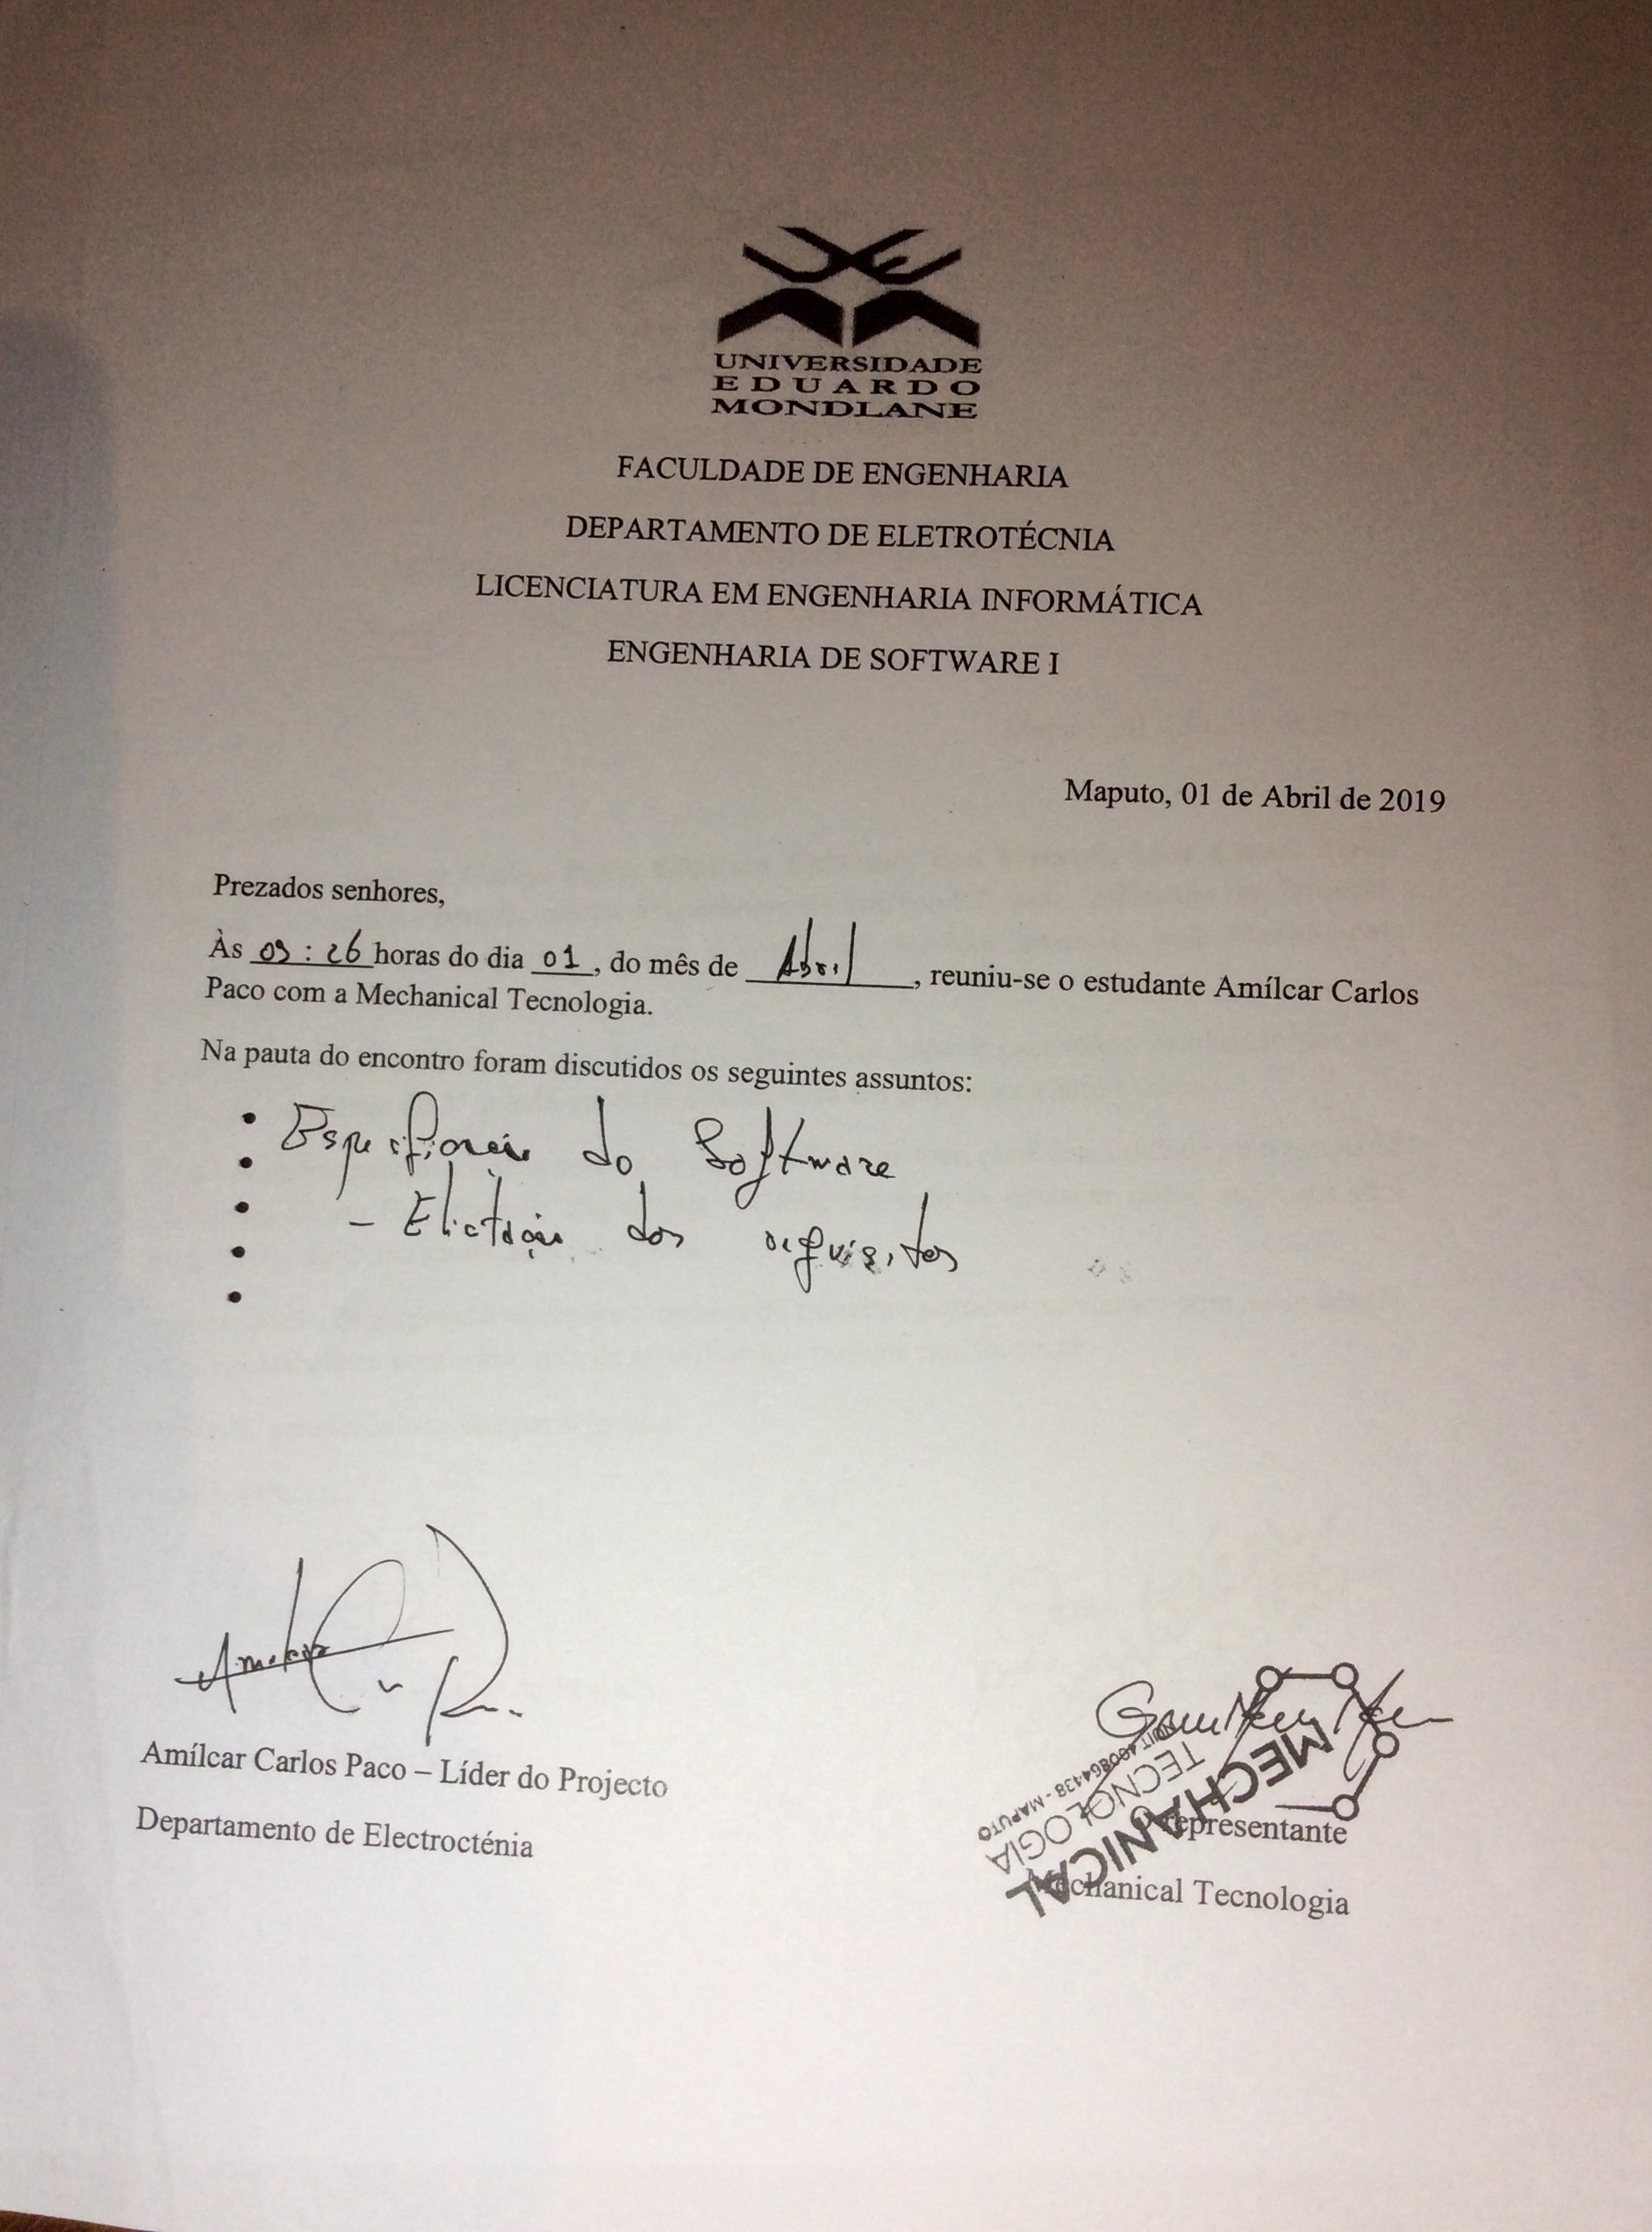 UNIVERSIDADE
EDUARDO
MONDLANE
FACULDADE DE ENGENHARIA
DEPARTAMENTO DE ELETROTÉCNIA
LICENCIATURA EM ENGENHARIA INFORMÁTICA
ENGENHARIA DE SOFTWARE I
Maputo, 01 de Abril de 2019
Prezados senhores,
Às 09:26 horas do dia 01, do mês de Abril, reuniu-se o estudante Amílcar Carlos
Paco com a Mechanical Tecnologia.
Na pauta do encontro foram discutidos os seguintes assuntos:
• Especificação do Software
•
• - Elictação dos requisitos
•
•
Amílcar Carlos Paco – Líder do Projecto
Departamento de Electrocténia
O representante
Mechanical Tecnologia
MECHANICAL
TECNOLOGIA
NUIT 400864438 - MAPUTO